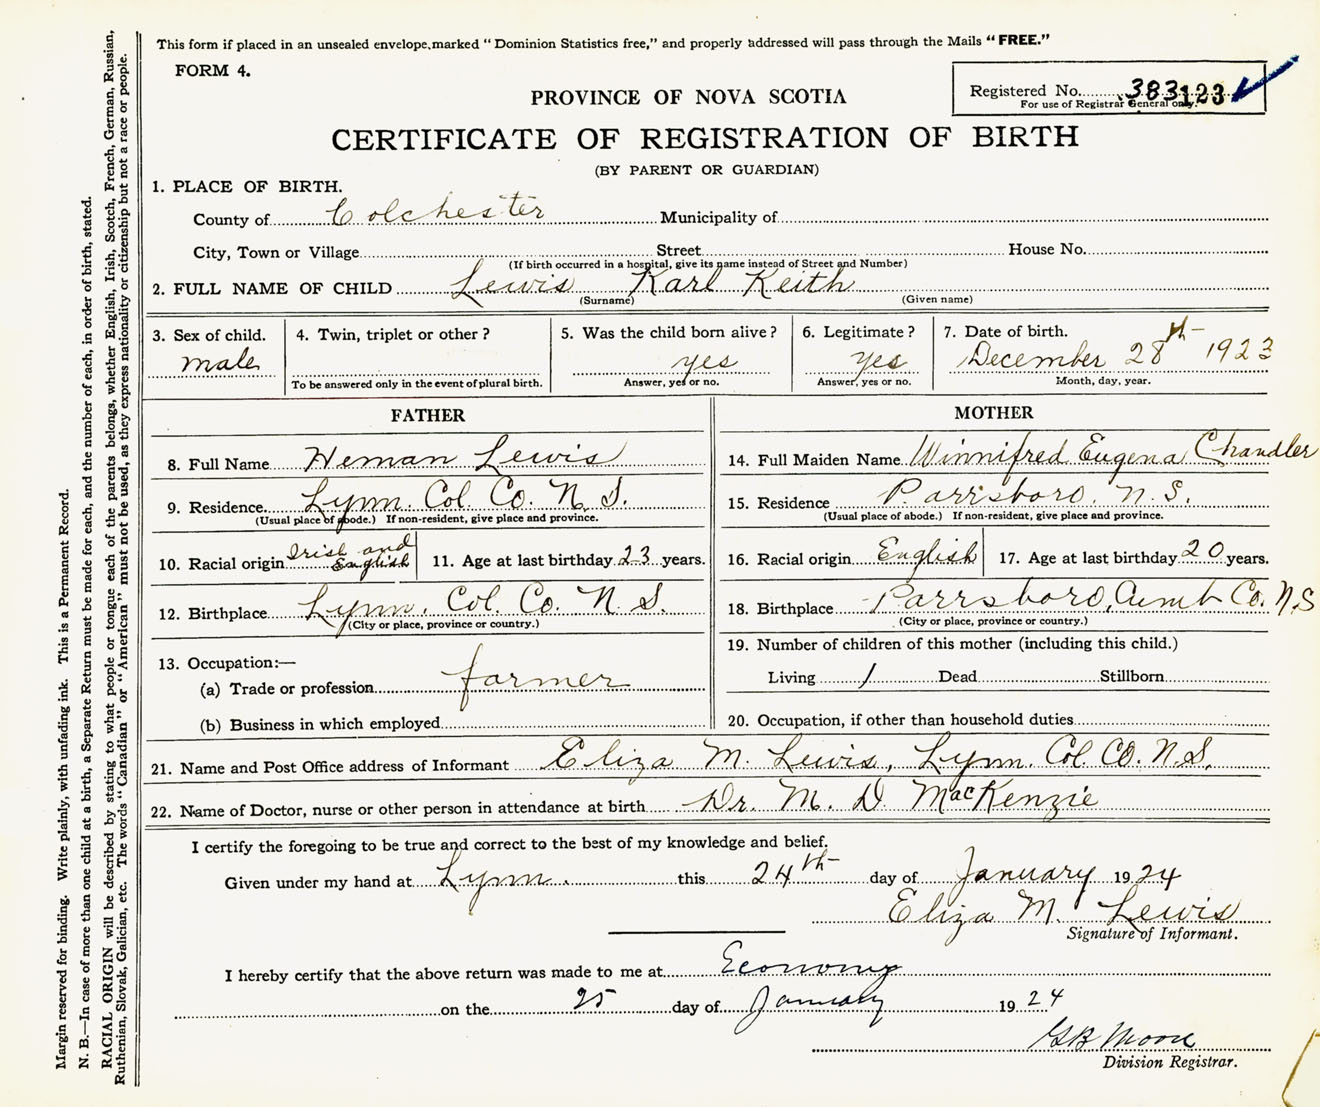 This form if placed in an unsealed envelope, marked "Dominion Statistics free," and properly addressed will pass through the Mails "FREE."
FORM 4.
Registered No. 383123
For use of Registrar General only.
PROVINCE OF NOVA SCOTIA
CERTIFICATE OF REGISTRATION OF BIRTH
(BY PARENT OR GUARDIAN)
1. PLACE OF BIRTH.
County of Colchester Municipality of
City, Town or Village Street House No.
(If birth occurred in a hospital, give its name instead of Street and Number)
2. FULL NAME OF CHILD Lewis Karl Keith
(Surname) (Given name)
3. Sex of child. 4. Twin, triplet or other? 5. Was the child born alive? 6. Legitimate? 7. Date of birth.
male yes yes December 28th 1923
To be answered only in the event of plural birth. Answer, yes or no. Answer, yes or no. Month, day, year.
FATHER MOTHER
8. Full Name Heman Lewis 14. Full Maiden Name Winnifred Eugena Chandler
9. Residence Lynn. Col. Co. N.S. 15. Residence Parrsboro. N.S.
(Usual place of abode.) If non-resident, give place and province. (Usual place of abode.) If non-resident, give place and province.
10. Racial origin Irish and English 11. Age at last birthday 23 years. 16. Racial origin English 17. Age at last birthday 20 years.
12. Birthplace Lynn. Col. Co. N.S. 18. Birthplace Parrsboro, Cumb Co. N.S
(City or place, province or country.) (City or place, province or country.)
13. Occupation:— 19. Number of children of this mother (including this child.)
(a) Trade or profession farmer Living 1 Dead Stillborn
(b) Business in which employed 20. Occupation, if other than household duties
21. Name and Post Office address of Informant Eliza M. Lewis, Lynn. Col. Co. N.S.
22. Name of Doctor, nurse or other person in attendance at birth Dr. M. D. MacKenzie
I certify the foregoing to be true and correct to the best of my knowledge and belief.
Given under my hand at Lynn. this 24th day of January 1924
Eliza M. Lewis
Signature of Informant.
I hereby certify that the above return was made to me at Economy
on the 25 day of January 1924
GB Moore
Division Registrar.
Margin reserved for binding. Write plainly, with unfading ink. This is a Permanent Record.
N. B.—In case of more than one child at a birth, a Separate Return must be made for each, and the number of each, in order of birth, stated.
RACIAL ORIGIN will be described by stating to what people or tongue each of the parents belongs, whether English, Irish, Scotch, French, German, Russian,
Ruthenian, Slovak, Galician, etc. The words "Canadian" or "American" must not be used, as they express nationality or citizenship but not a race or people.